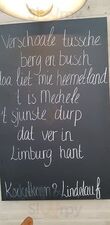 Verschoale tussche
berg en busch
doa liet mie heemetland
't is Mechele
't sjunste durp
dat ver in
Limburg hant
Lindelauf